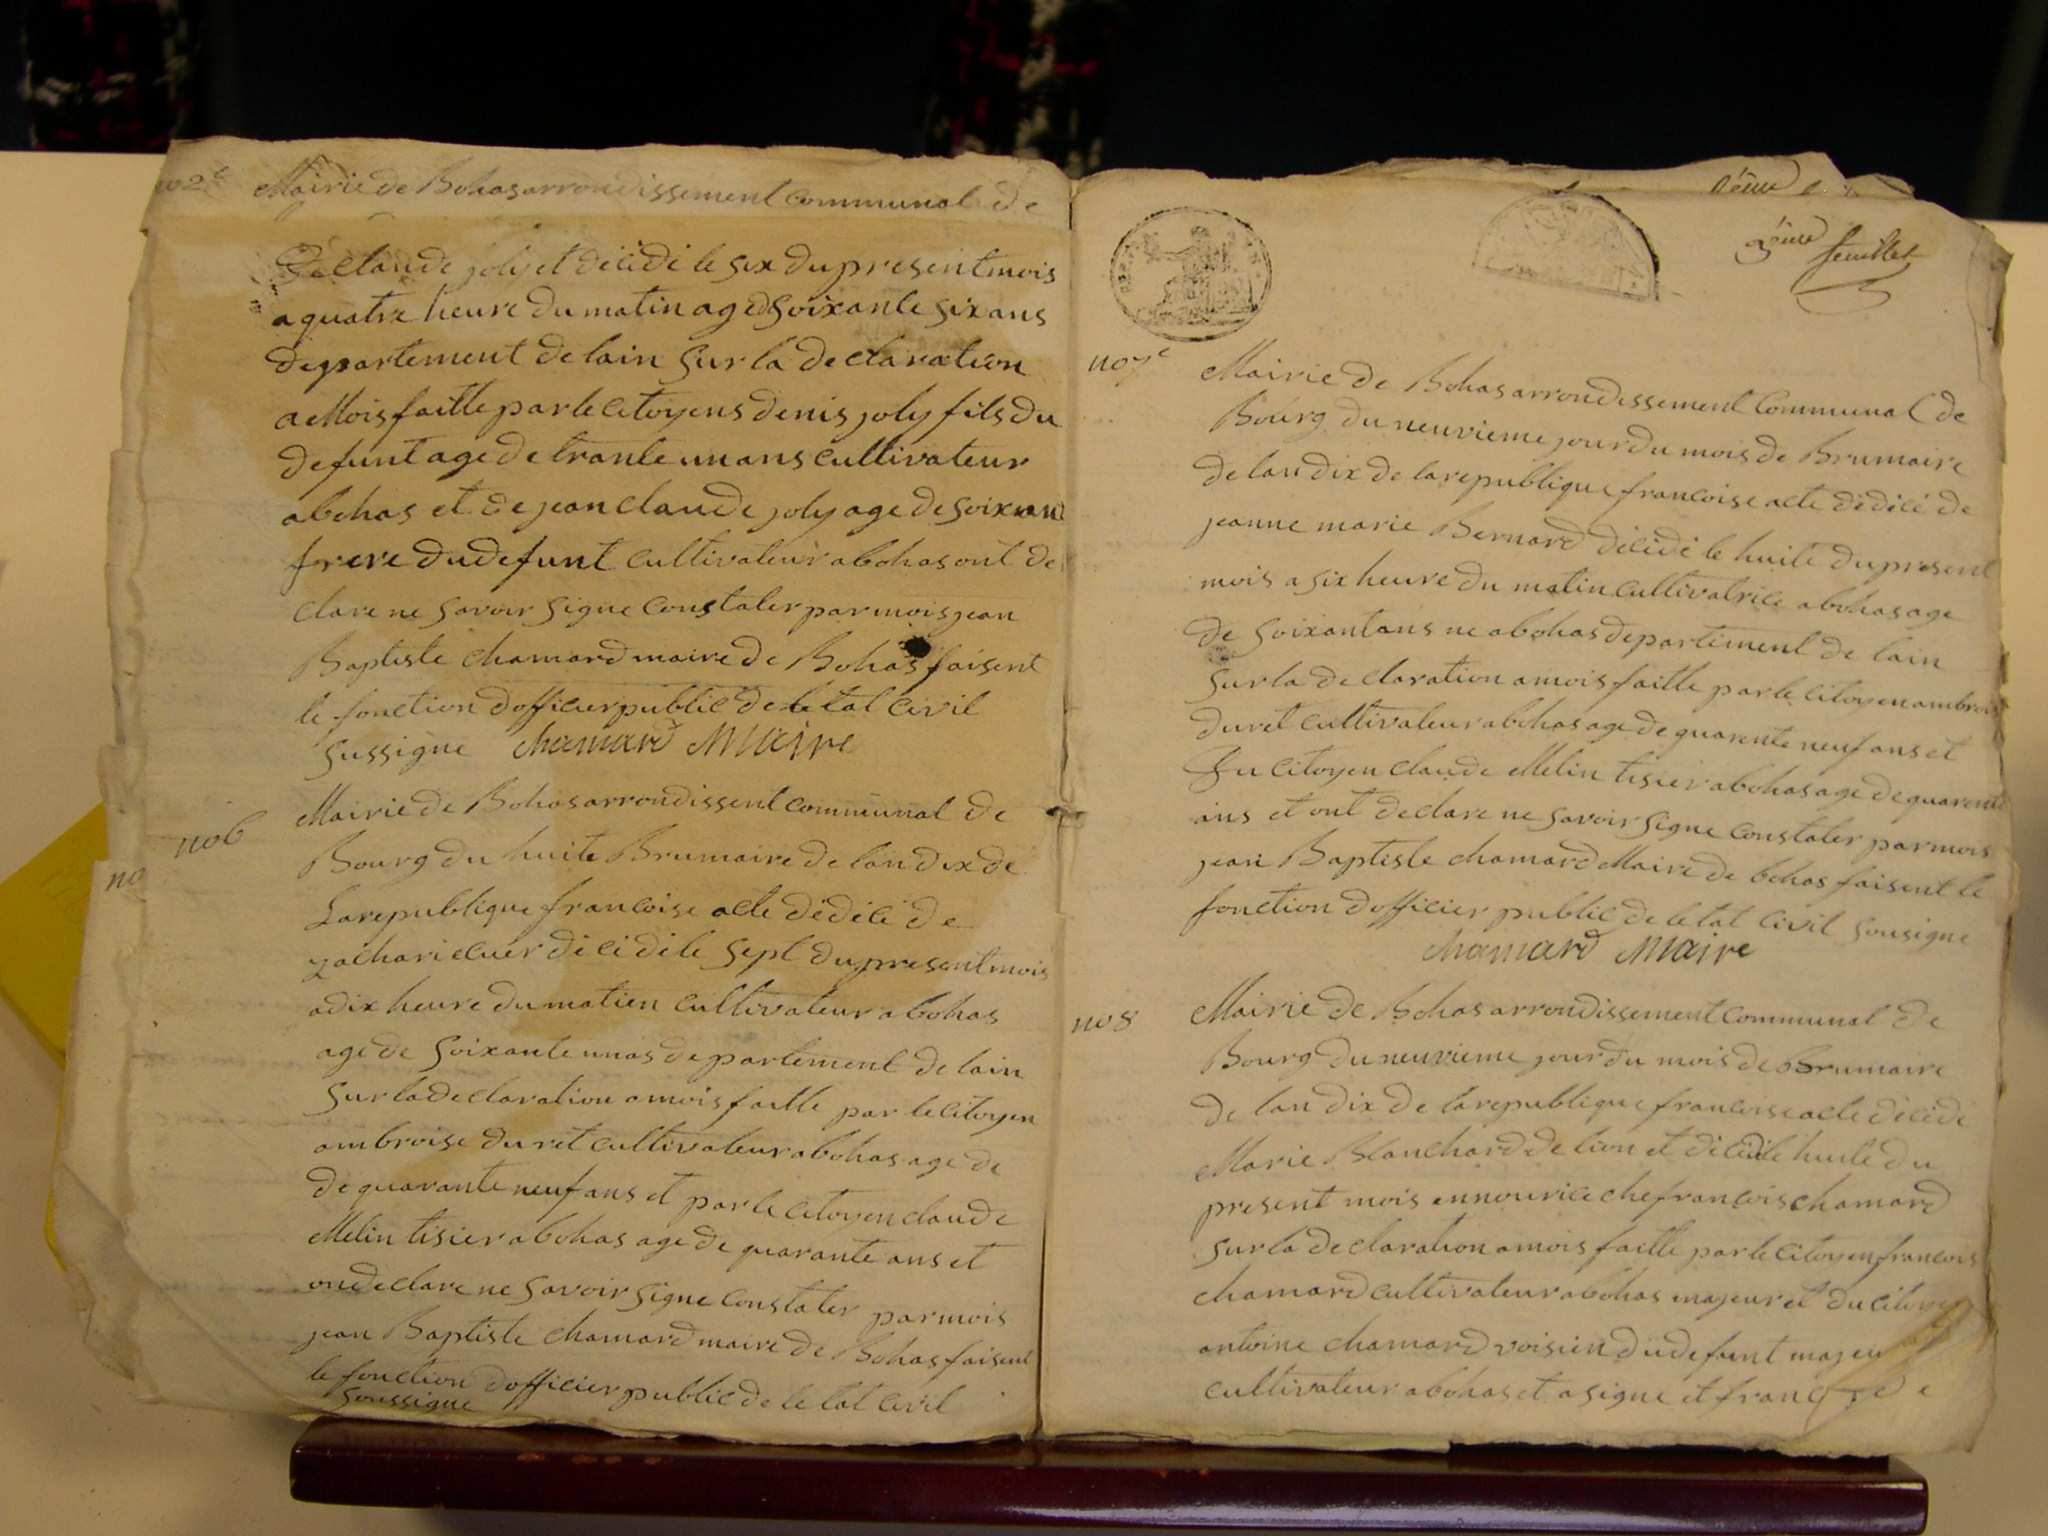 no 2e Mairie de Bohas arrondissement communal de
De Claude joly et décidé le six du present mois
a quatre heure du matin age d Soixante six ans
departement de lain sur la declaration
a Mois faitte par le citoyens denis joly fils du
defunt age de trante un ans cultivateur
abohas et de jean claude joly age de soixan
frere du defunt cultivateur abohas ont de
clare ne savoir signe constater par mois jean
Baptiste chamard maire de Bohas faisent
le fonction dofficier public de le tat civil
sussigne chamard Maire
no 6 Mairie de Bohas arrondissent communal de
no
Bourg du huite Brumaire de lan dix de
La republique francoise acte dédécé de
zacharie cuer décidé le sept du present mois
a dix heure du matien cultivateur abohas
age de soixante unas departement de lain
sur la declaration a mois faitte par le citoyen
ambroise duret cultivateur abohas age de
de quarante neuf ans et par le citoyen claude
Melin tisier abohas age de quarante ans et
on declare ne savoir signe constater par mois
jean Baptiste chamard maire de Bohas faisent
le fonction dofficier public de le tat civil
soussigne
2eme feuillet
no 7e Mairie de Bohas arrondissement communal de
Bourg du neuvieme jour du mois de Brumaire
de lan dix de la republique francoise acte dédécé de
jeanne marie Bernard décidé le huite du present
mois a six heure du matin cultivatrice abohas age
de soixantans ne abohas departement de lain
sur la declaration a mois faitte par le citoyen ambroi
duret cultivateur abohas age de quarente neuf ans et
Du citoyen claude Melin tisier abohas age de quarente
ans et ont declare ne savoir signe constater par mois
jean Baptiste chamard Maire de bohas faisent le
fonction dofficier public de le tat civil sousigne
chamard Maire
no 8 Mairie de Bohas arrondissement communal de
Bourg du neuvieme jour du mois de Brumaire
de lan dix de la republique francoise acte décéde
Marie Blanchard de lion et décédé le huite du
present mois en nourice che francois chamard
sur la declaration a mois faitte par le citoyen francois
chamard cultivateur abohas majeur et du citoye
antoine chamard voisien du defunt majeu
cultivateur abohas et a signe et franc